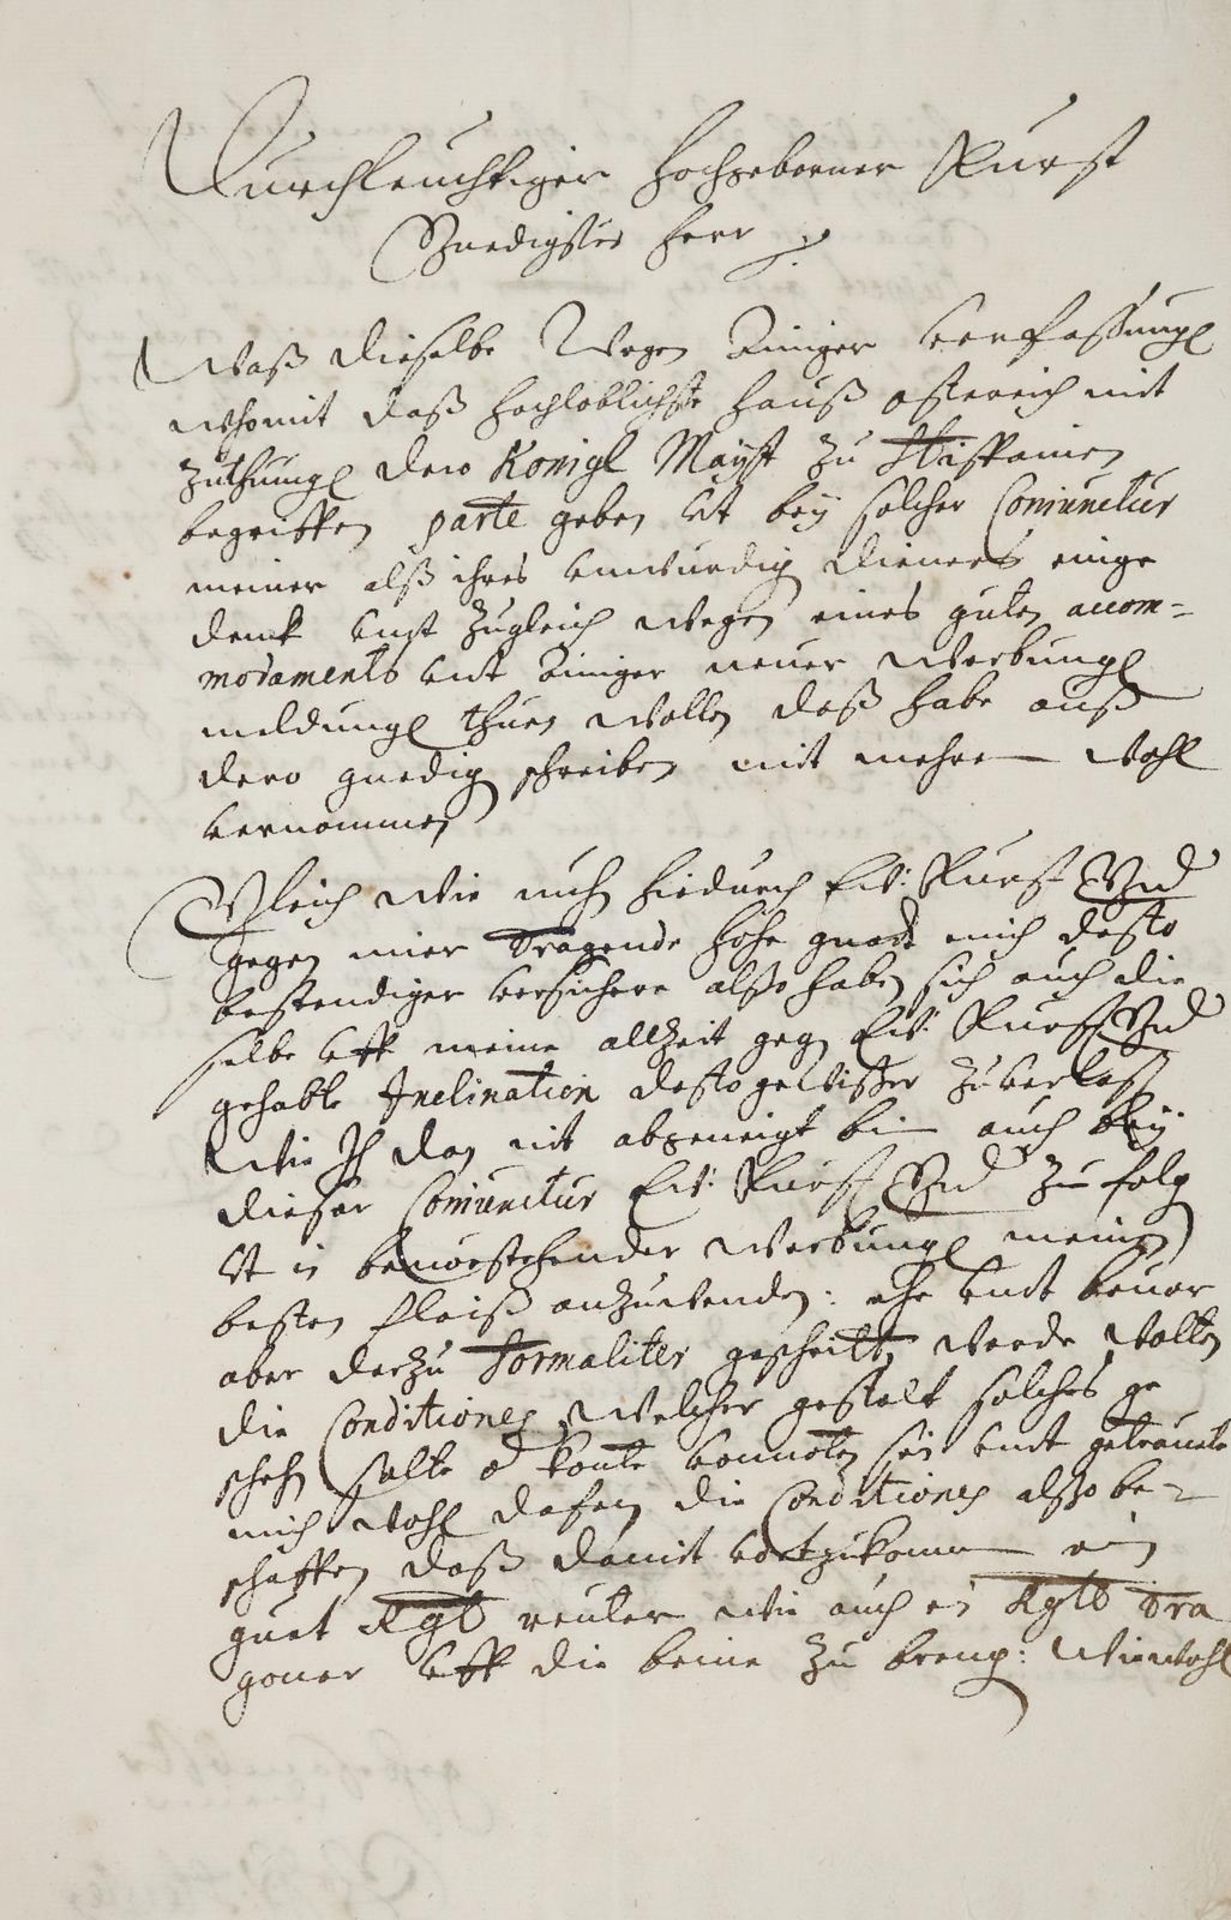 Durchleuchtiger Hochgeborner Furst
Gnedigster Herr
Waß dieselbe Wegen Einiger verfassung
whomit daß hochloblichste Hauß Ostereich mit
zuthung dero Konigl Mayst zu Hispanien
begriffen parte geben Vt bey solcher Coniunctur
meiner alß ihres vnwurdig dieners einge
denk vnst zugleich wegen eines guten accom=
modaments vnt Einiger neuer Werbung
meldung thuen wollen daß habe auß
dero gnedig schreiben mit mehren wohl
vernommen
Gleich wie mich hiedurch Ew: Furst Gnd
gegen mier Dragende hohe gnadt mich desto
bestendiger versichere alßo haben sich auch die
selbe Vff meine allzeit geg Ew: Furst Gnd
gehabte Inclination desto gewisser zuverlaß
Wie Ich dan nit abgeneigt bin auch bey
dieser Coniunctur Ew: Furst Gnd zu folg
Vt in beuorstehender Werbung meinen
besten fleiß anzuwenden: ehe vndt beuor
aber darzu Formaliter geschritt werde wolten
die Conditiones Welcher gestalt solches ge
schehn solte od konte vonnoten sein vndt getrauete
mich wohl dafern die Conditiones alßo be=
schaffen daß damit vortzukommen ein
guet Rgt reuter wie auch ein Rgtt Dra
goner Vff die beine zu breng: Wiewohl